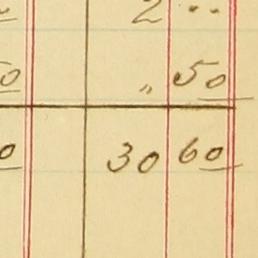 2 ..
0 " 50
0 30 60